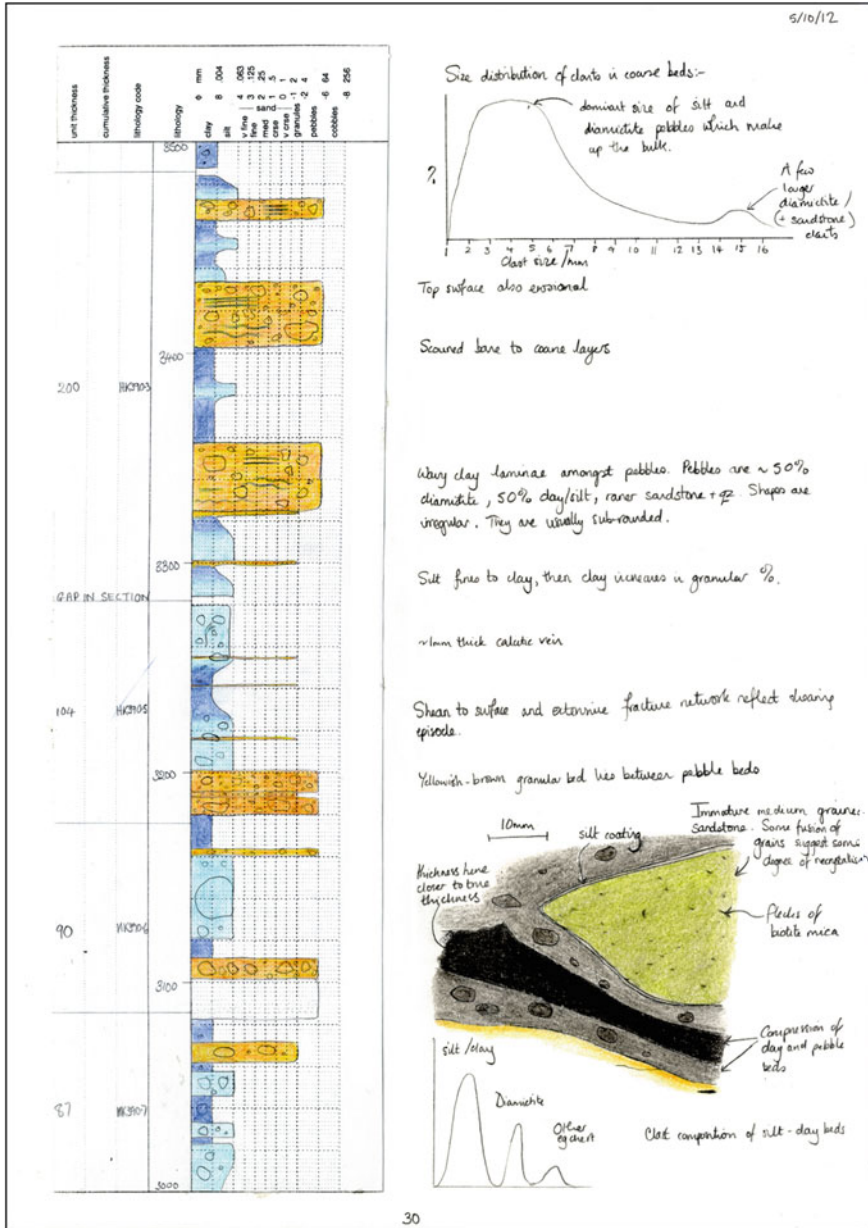 5/10/12
unit thickness
cumulative thickness
lithology code
lithology
Φ mm
clay
8 .004
silt
4 .063
v fine
3 .125
fine
2 .25
med
1 .5
crse
0 1
v crse
-1 2
granules
-2 4
pebbles
-6 64
cobbles
-8 256
sand
3500
3400
200
HK3903
3300
GAP IN SECTION
104
HK3905
3200
90
HK3906
3100
87
HK3907
3000
Size distribution of clasts in coarse beds:-
dominant size of silt and
diamictite pebbles which make
up the bulk.
%
A few
larger
diamictite/
(+ sandstone)
clasts
1 2 3 4 5 6 7 8 9 10 11 12 13 14 15 16
Clast size/mm
Top surface also erosional
Scoured base to coarse layers
Wavy clay laminae amongst pebbles. Pebbles are ~50%
diamictite, 50% clay/silt, rarer sandstone + qz. Shapes are
irregular. They are usually sub-rounded.
Silt fines to clay, then clay increases in granular %.
~1mm thick calcitic vein
Shear to surface and extensive fracture network reflect shearing
episode.
Yellowish-brown granular bed lies between pebble beds
10mm
silt coating
Immature medium grained
sandstone. Some fusion of
grains suggest some
degree of
thickness here
closer to true
thickness
Flecks of
biotite mica
Compression of
clay and pebble
beds
silt/clay
Diamictite
Other
eg chert
Clast composition of silt-clay beds
30